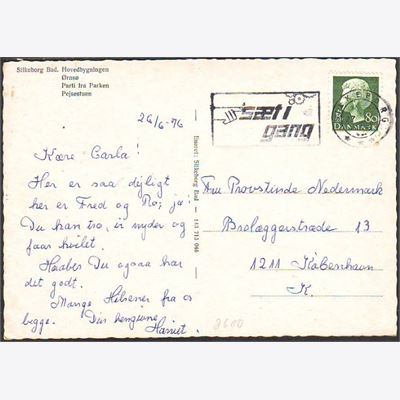 Silkeborg Bad. Hovedbygningen
Ørnsø
Parti fra Parken
Pejsestuen
26/6-76
Kære Carla!
Her er saa dejligt
her er Fred og Ro, ja!
Du kan tro, vi nyder og
faar hvilet.
Haaber Du ogsaa har
det godt.
Mange Hilsener fra os
begge. Din hengivne
Harriet.
Eneret: Silkeborg Bad — 141 713 046
sæt i
gang
80
DANMARK
Fru Provstinde Nedermark
Brolæggerstræde 13
1211 København
K.
8600